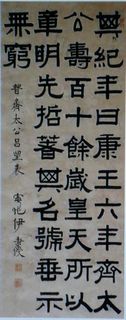 其紀年曰康王六年齊太
公壽百十餘歲皇天所以
章明先哲著其名號垂示
無窮
晉齊太公呂望表 伊秉綬